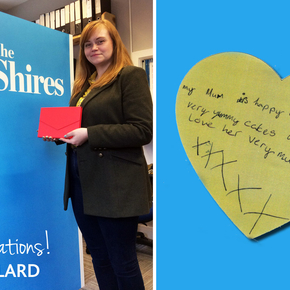 the
Shires
ations!
LARD
my Mum is happy
very yummy cakes
Love her very mu
XXX
XX